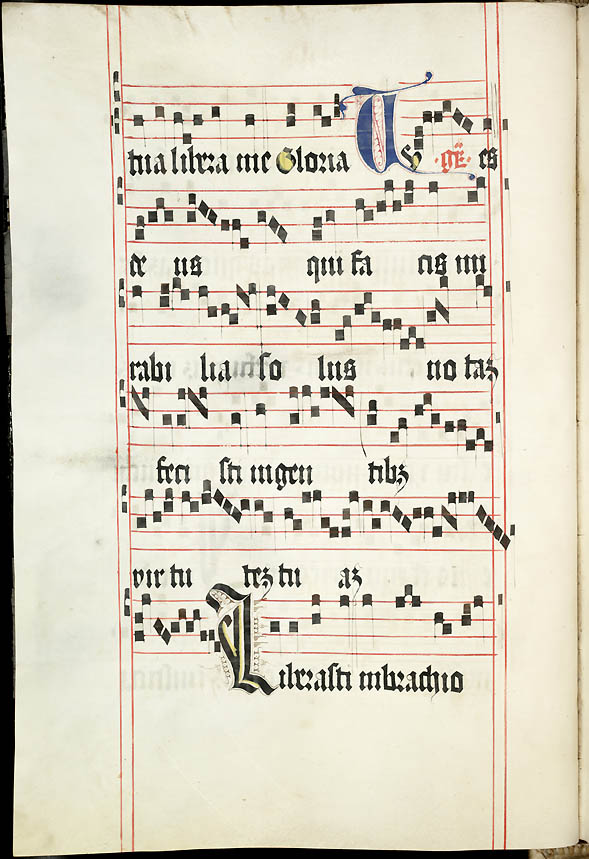 tua libera me Gloria Tu · gr̄e · es
de us qui fa cis mi
rabi lia uſ ſo lus no taʒ
feci ſti in gen tibʒ
vir tu teʒ tu aʒ
Liberaſti in brachio